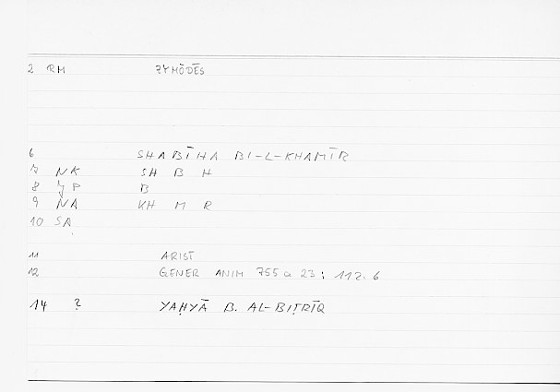 2 RM ZYMŌDĒS
6 SHABĪHA BI-L-KHAMĪR
7 NK SH B H
8 JP B
9 NA KH M R
10 SA
11 ARIST
12 GENER ANIM 755 a 23 : 112.6
14 ? YAḤYĀ B. AL-BIṬRĪQ